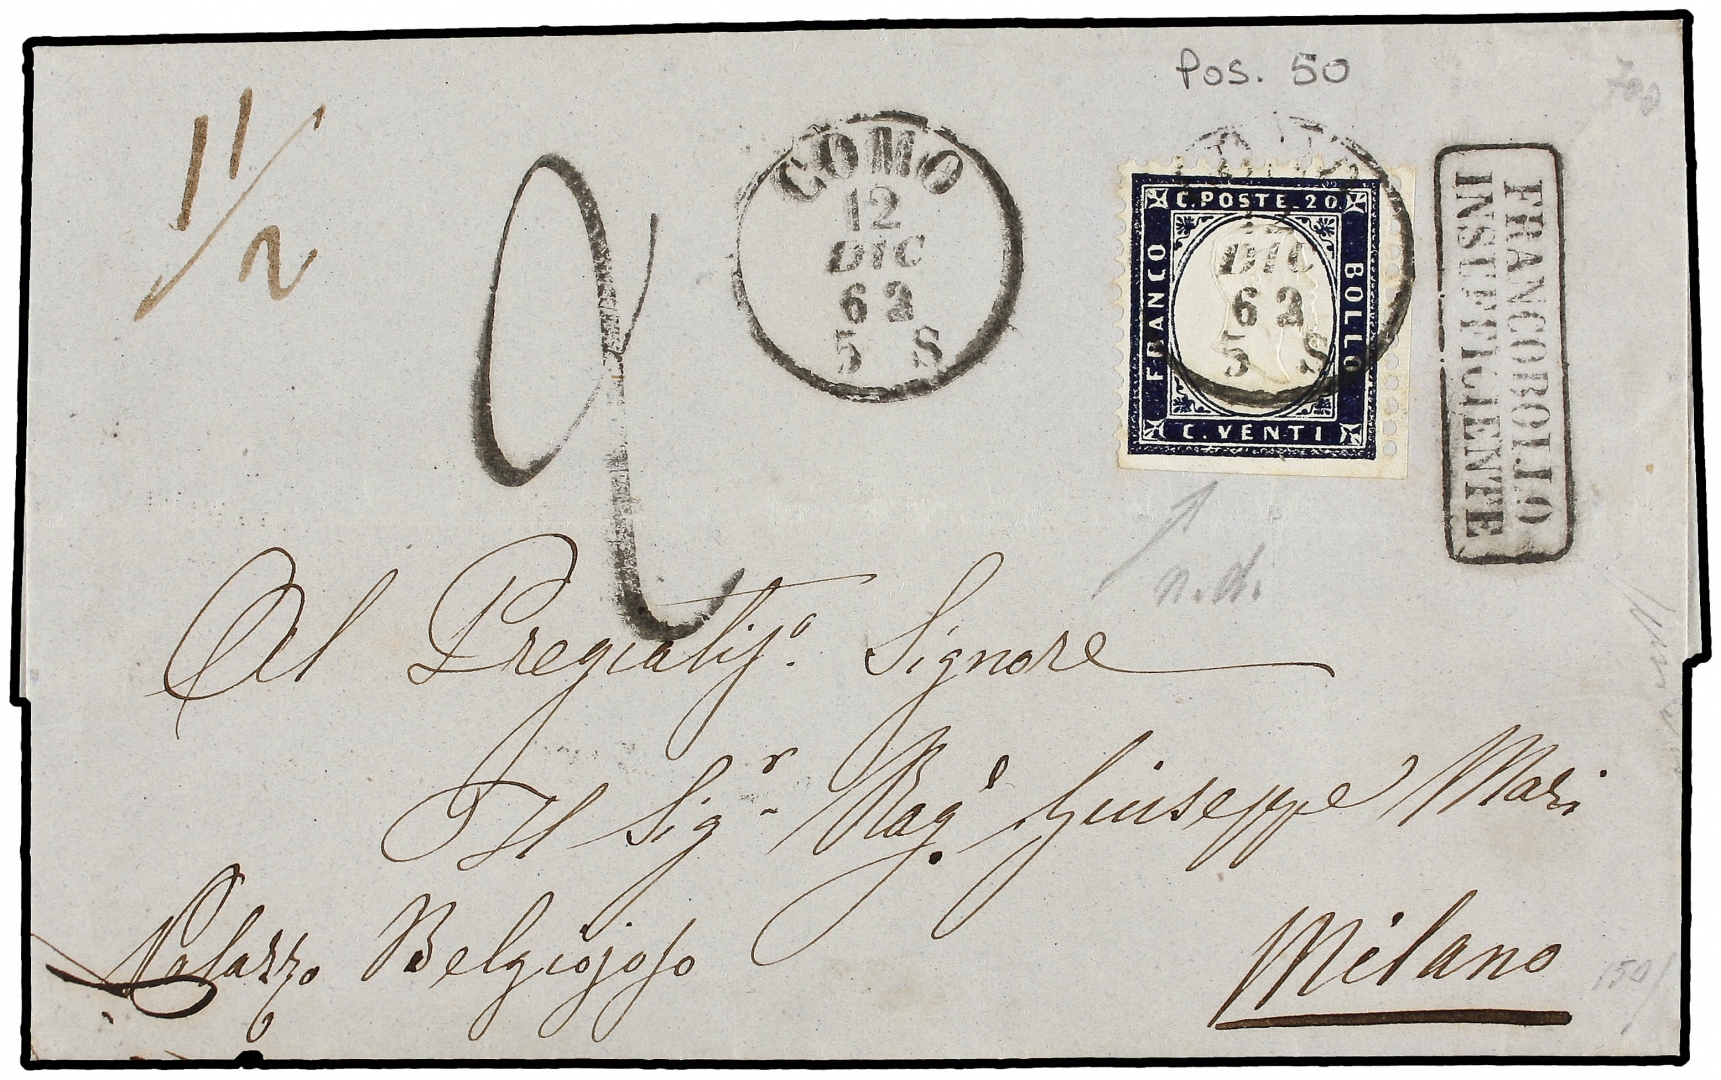 Pos. 50
700
11/2
2
COMO
12
DIC
62
5 S
C. POSTE. 20.
FRANCO
BOLLO
C. VENTI
DIC
62
5 S
FRANCOBOLLO
INSUFICIENTE
Al Pregiatis.o Signore
Il Sig.r Rag.e Giuseppe Mari
Palazzo Belgiojoso
Milano